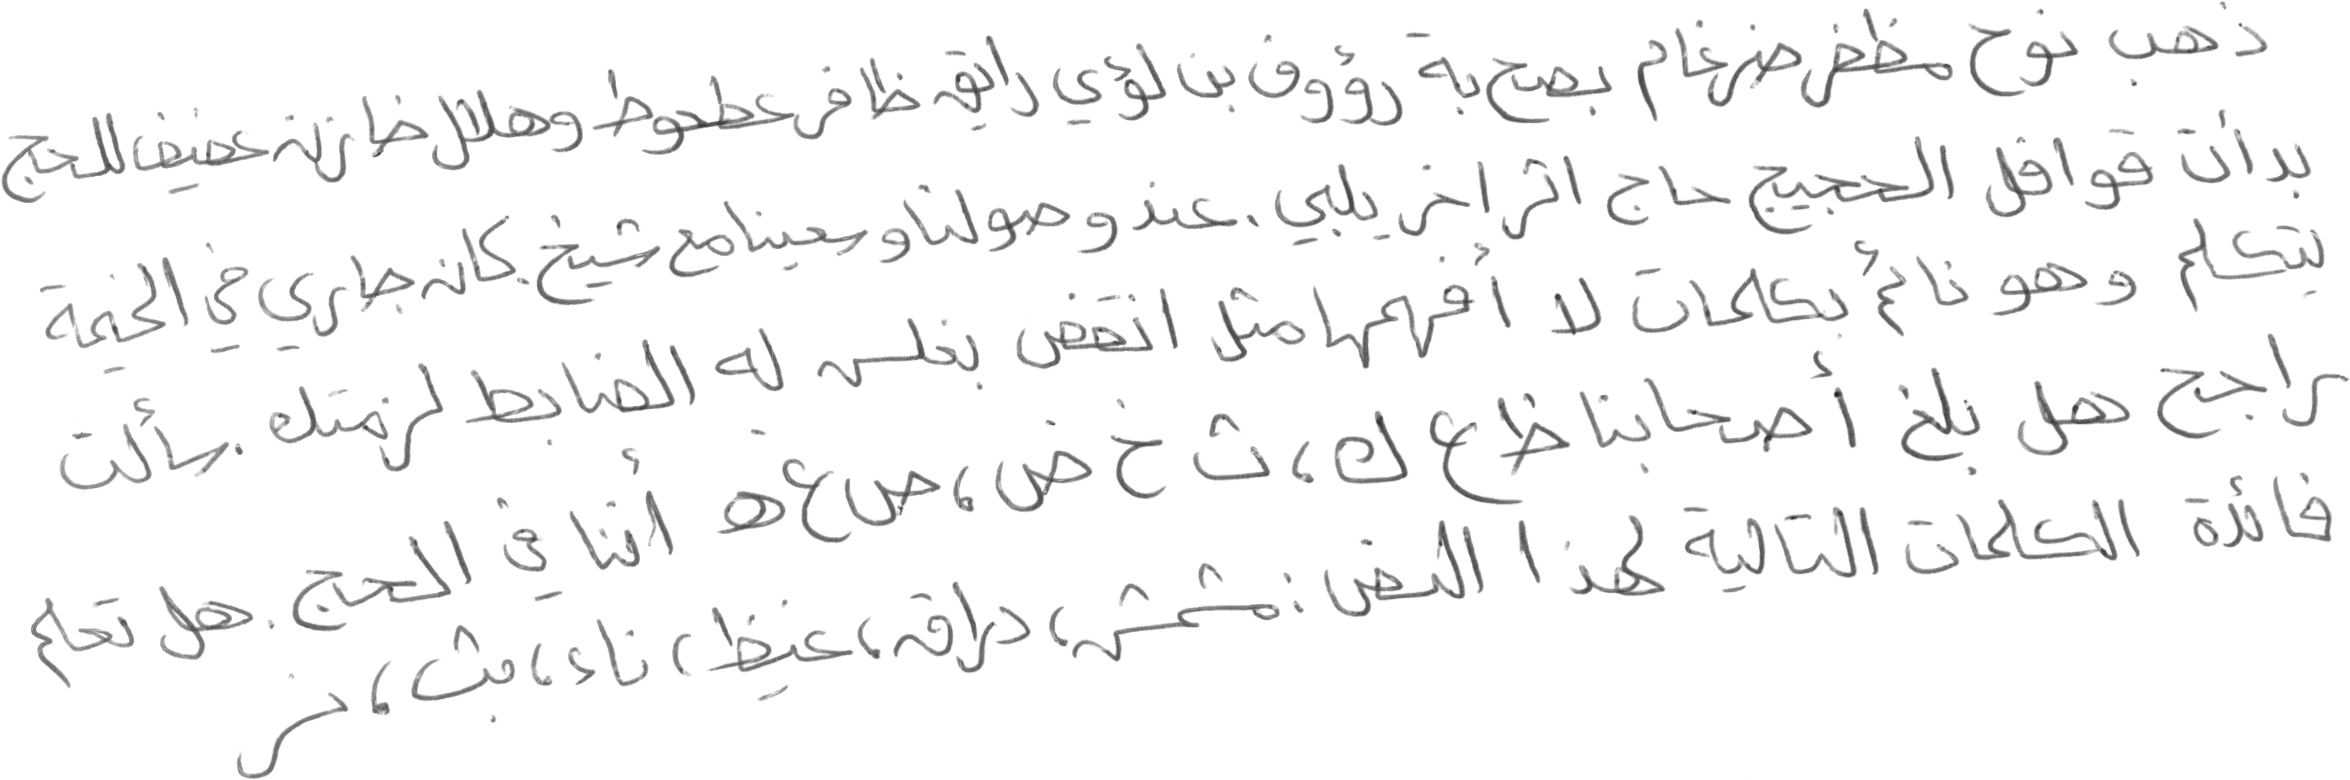 ذهب نوح مظفر ضرغام بصحبة رؤوف بن لؤي رايق ظافر عطعوط وهلال خازن عفيف للحج
بدأت قوافل الحجيج حاج اثر اخر يلبي. عند وصولنا وسعينا مع شيخ. كان جاري في الخيمة
يتكلم وهو نائم بكلمات لا أفهمها مثل انقض بغلس له الضابط لزمتك. سألت
راجح هل بلغ أصحابنا ظ ع ك، ث خ ض، ص ع ه أننا في الحج. هل تعلم
فائدة الكلمات التالية لهذا النص: مشمش، دراق، غيظ، ناء، بث، خر